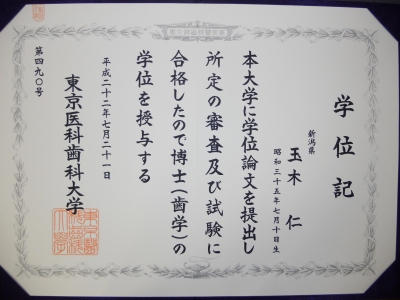 学位記
新潟県
玉木 仁
昭和三十五年七月十日生
本大学に学位論文を提出し
所定の審査及び試験に
合格したので博士(歯学)の
学位を授与する
平成二十二年七月二十一日
東京医科歯科大学
第四九〇号